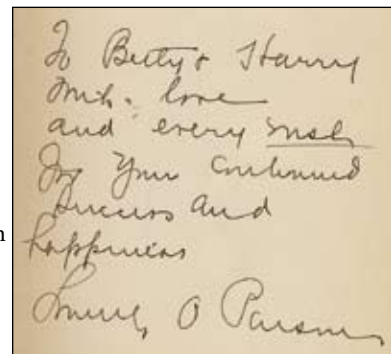 To Betty & Harry
with love
and every wish
for your continued
success and
happiness
n
Louella O Parsons